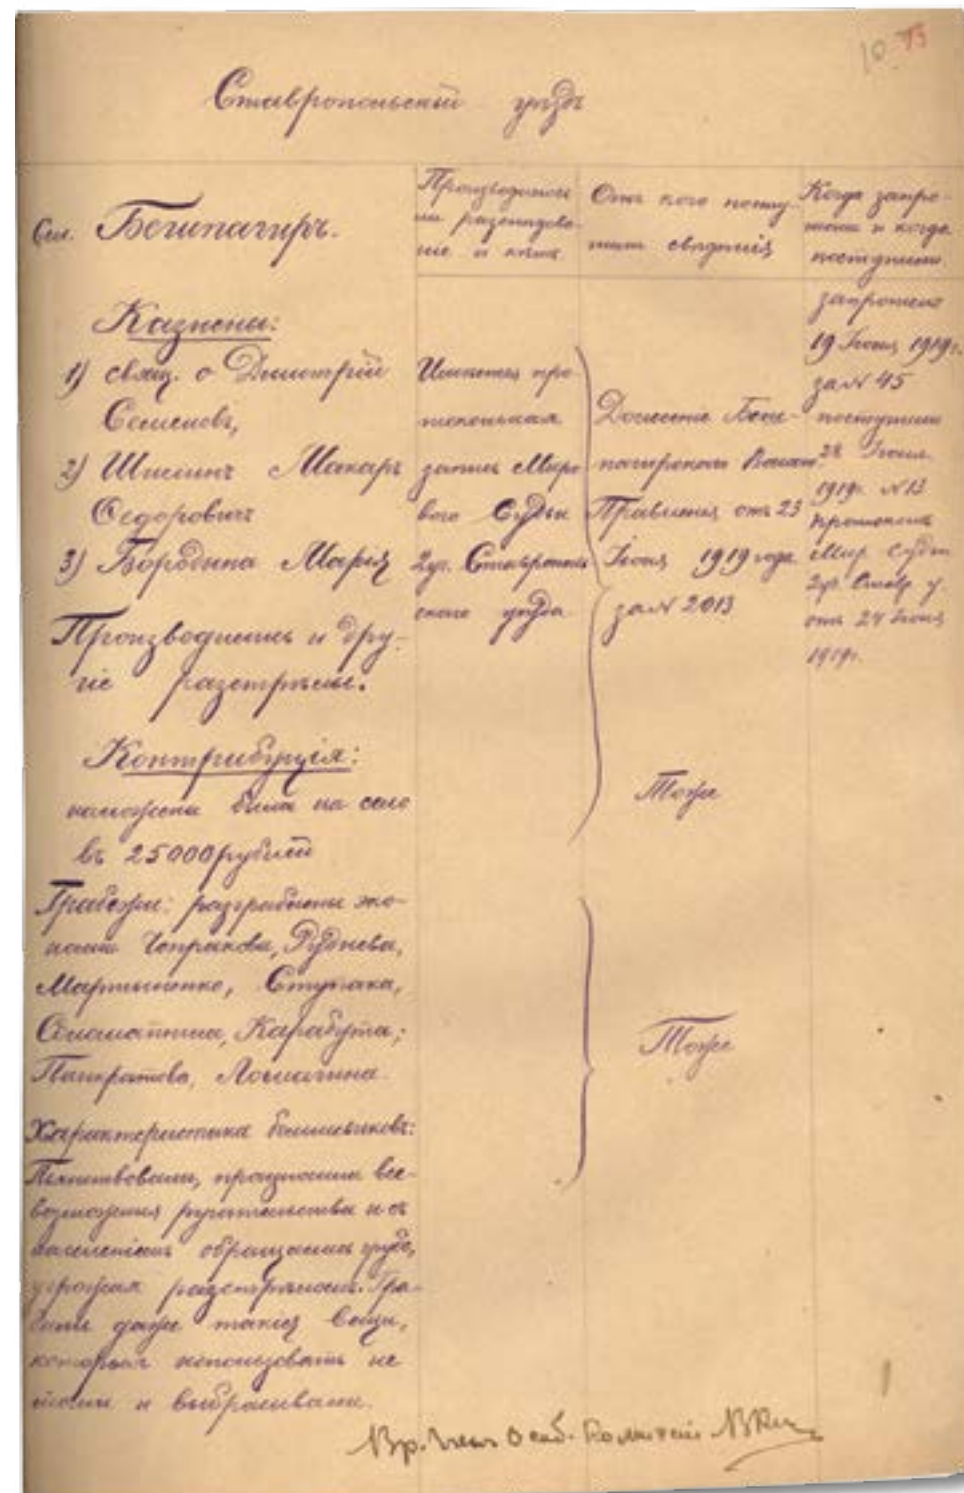 10 13
Ставропольскій уѣздъ
Сел. Бешпагиръ.
Производилось
ли разслѣдова-
ніе и кѣмъ.
Отъ кого посту-
пили свѣдѣнія
Когда запро-
шены и когда
поступили.
Казнены:
1) свящ. о Димитрій
Семеновъ,
2) Шишинъ Макаръ
Федоровичъ
3) Бородина Марія
Производились и дру-
гіе разстрѣлы.
Имѣется про-
токольная
запись Миро-
вого Судьи
2 уч. Ставрополь-
скаго уѣзда
Донесеніе Беш-
пагирскаго Волост.
Правленія отъ 23
Іюня 1919 года
за № 2013
запрошено
19 Іюня 1919 г.
за № 45
поступили
28 Іюня
1919 г. № 13
протоколъ
Мир. Судьи
2 уч. Ставр. у.
отъ 24 Іюня
1919 г.
Контрибуція:
наложена была на село
въ 25000 рублей
Тоже
Грабежи: разграблены эко-
номіи Чепракова, Руднева,
Мартыненко, Ступака,
Карабута;
Панкратова, Ломагина.
Тоже
Характеристика большевиковъ:
произносили все-
возможныя ругательства и съ
населеніемъ обращались грубо,
угрожая разстрѣломъ. Гра-
били даже такія вещи,
которыя использовать не
могли и выбрасывали.
Вр. Член Особ. Комиссіи